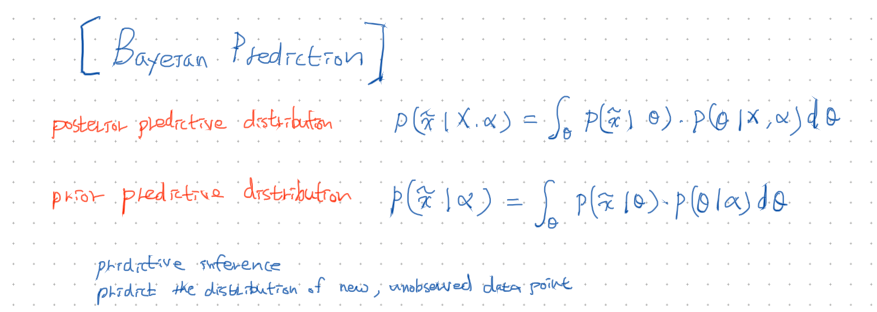 [Bayesian Prediction]
posterior predictive distribution p(x̃ | X, α) = ∫_θ p(x̃ | θ) · p(θ | X, α) dθ
prior predictive distribution p(x̃ | α) = ∫_θ p(x̃ | θ) · p(θ | α) dθ
predictive inference
predict the distribution of new, unobserved data point